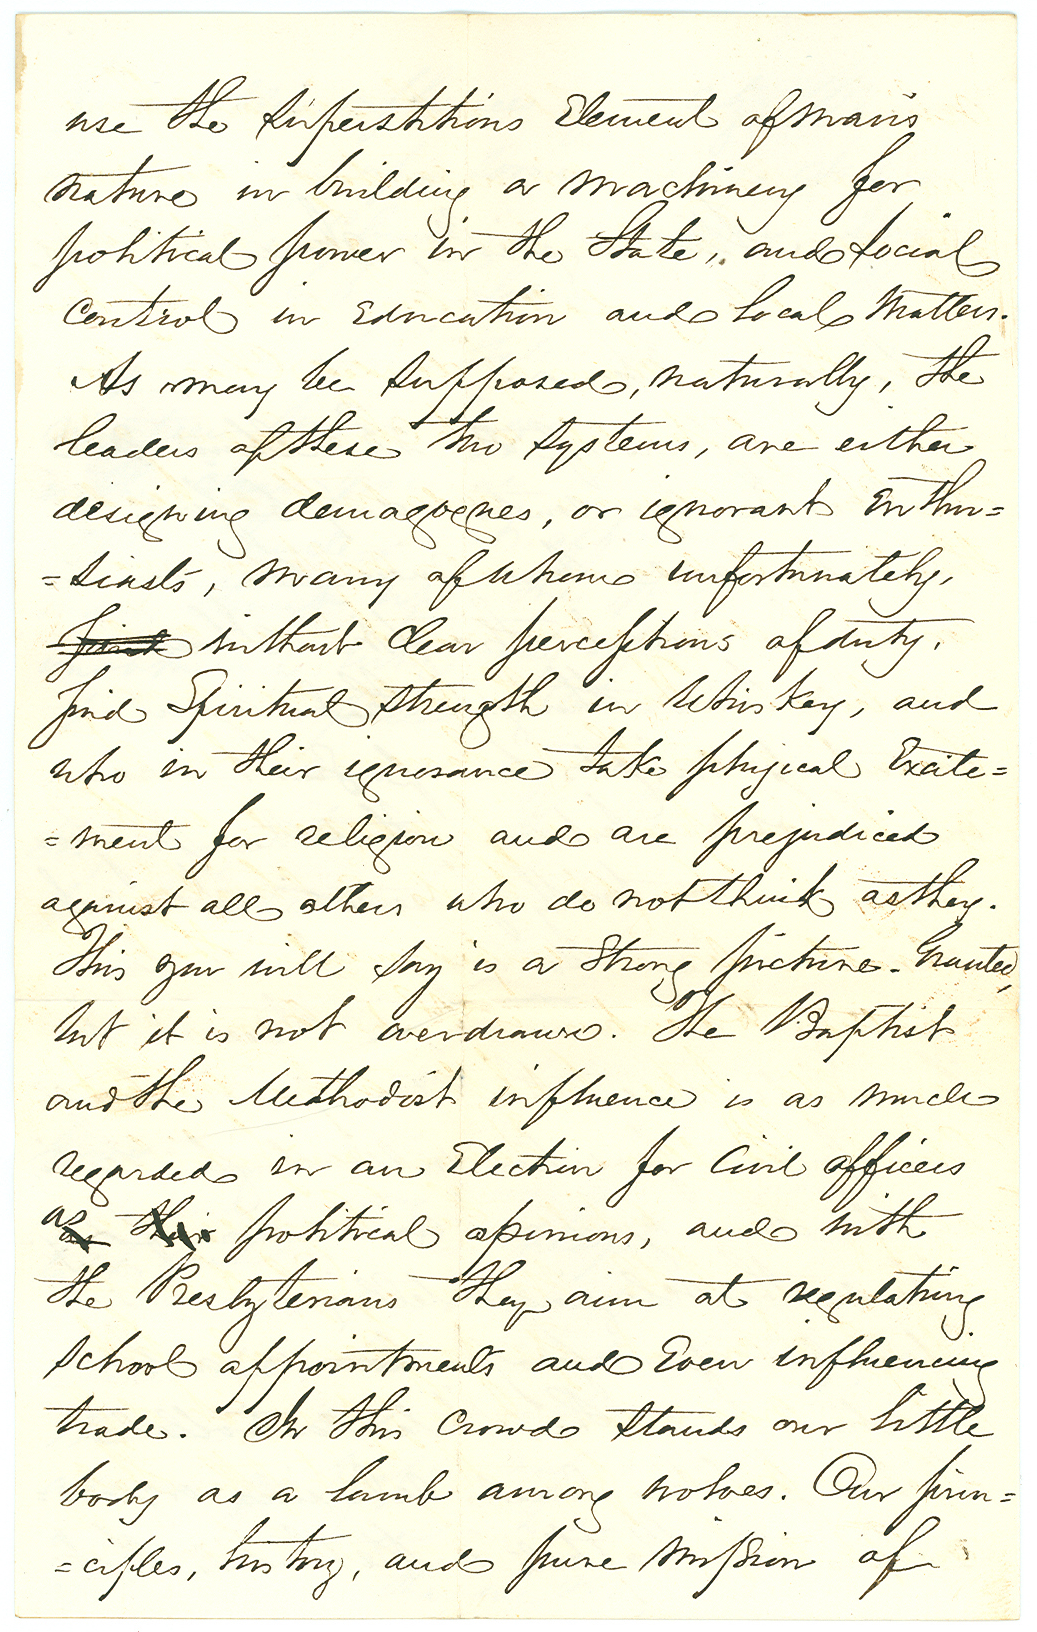 use the superstitious Element of man's
nature in building a machinery for
political power in the State, and social
control in Education and local matters.
As may be supposed, naturally, the
leaders of these two systems, are either
designing demagogues, or ignorant Enthu=
=siasts, many of whom unfortunately,
find without clear perceptions of duty,
find Spiritual strength in Whiskey, and
who in their ignorance take physical Excite=
=ment for religion and are prejudiced
against all others who do not think as they.
This you will say is a strong picture. Granted,
but it is not overdrawn. The Baptist
and the Methodist influence is as much
regarded in an Election for Civil officers
as their political opinions, and with
the Presbyterians they aim at regulating
school appointments and Even influencing
trade. In this crowd stands our little
body as a lamb among wolves. Our prin=
=ciples, history, and pure mission of